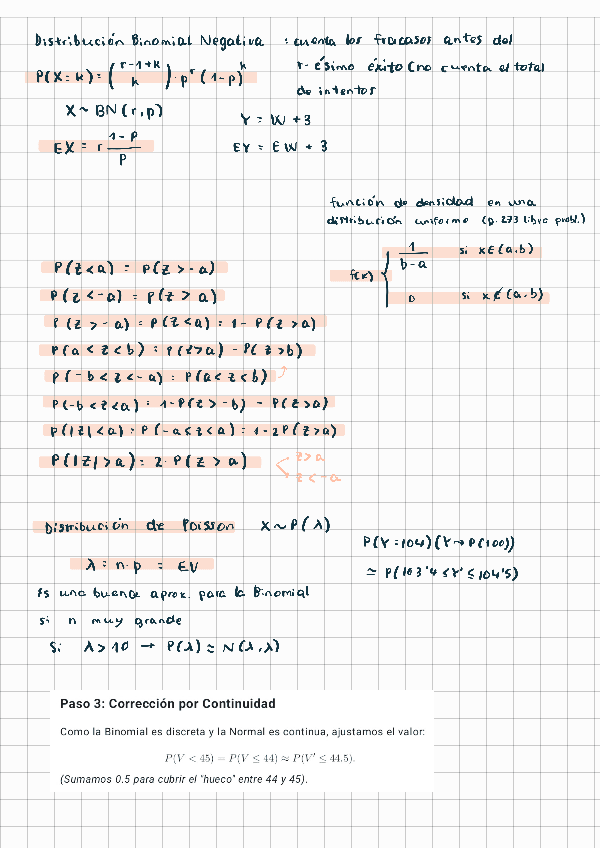 Distribución Binomial Negativa : cuenta los fracasos antes del
r-ésimo éxito (no cuenta el total
de intentos
P(X=k) = (r-1+k k) · p^r (1-p)^k
X ~ BN(r,p)
Y = W + 3
EX = r (1-p)/p
EY = EW + 3
función de densidad en una
distribución uniforme (p.273 libro probl.)
f(x) { 1/(b-a) si x∈(a,b)
0 si x∉(a,b)
P(Z<a) = P(Z>-a)
P(Z<-a) = P(Z>a)
P(Z>-a) = P(Z<a) = 1-P(Z>a)
P(a<Z<b) = P(Z>a) - P(Z>b)
P(-b<Z<-a) = P(a<Z<b)
P(-b<Z<a) = 1-P(Z>-b) - P(Z>a)
P(|Z|<a) = P(-a<Z<a) = 1-2P(Z>a)
P(|Z|>a) = 2·P(Z>a)
Z>a
Z<-a
Distribución de Poisson X~P(λ)
λ = n·p = EV
Es una buena aprox. para la Binomial
si n muy grande
Si λ>10 → P(λ) ≈ N(λ,λ)
P(Y=104) (Y→P(100))
≃ P(103'4 ≤ Y' ≤ 104'5)
Paso 3: Corrección por Continuidad
Como la Binomial es discreta y la Normal es continua, ajustamos el valor:
P(V < 45) = P(V ≤ 44) ≈ P(V' ≤ 44.5).
(Sumamos 0.5 para cubrir el "hueco" entre 44 y 45).